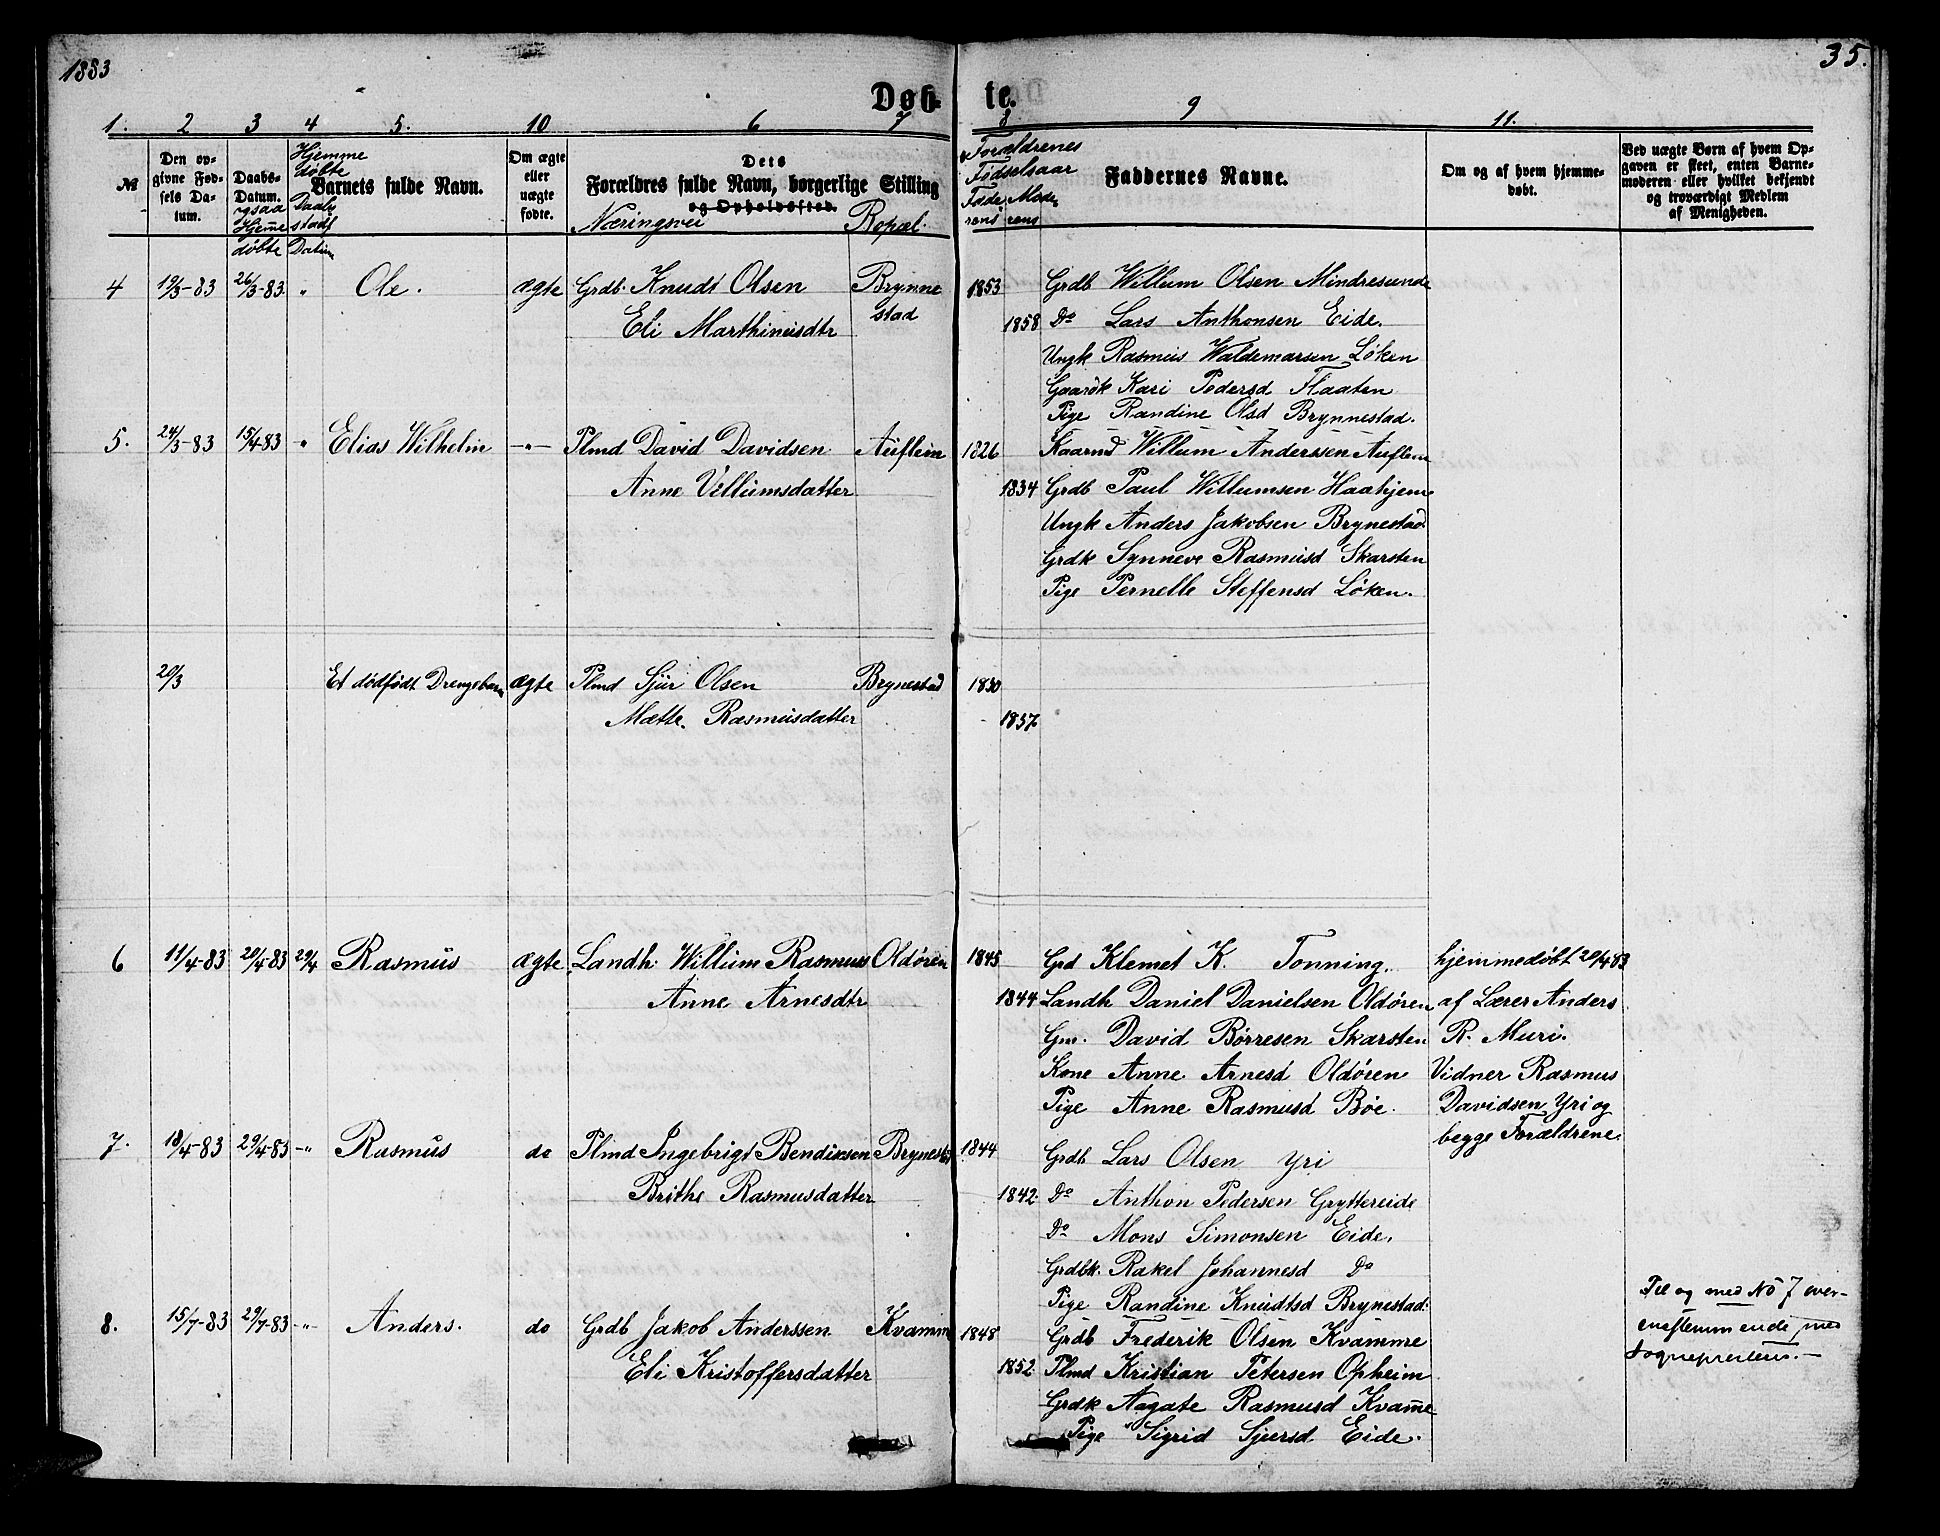 1883
35.
Døb-
te.
1. 2 3 4 5. 10 6 7 8 9 11.
№
Den op-
givne Fød-
sels Da-
tum.
Daabs-
Datum.
ogsaa
Hjeme
døbte
Hjemme
døbte
Daabs
stadf
Datum
Barnets fulde Navn.
Om ægte
eller
uægte
fødte.
Dets
Forældres fulde Navn, borgerlige Stilling
og Opholdssted.
Næringsvei Bopæl.
Forældrenes
Fødselsaar
Fade Mode
rens rens
Faddernes Navne.
Om og af hvem hjemme-
døbt.
Ved uægte Børn af hvem Op-
gaven er skeet, enten Barne-
moderen eller hvilket bekjendt
og troværdigt Medlem
af Menigheden.
4 19/3-83 26/3-83 " Ole. ægte Grdb. Knudt Olsen Brynne 1853 Grdb Willum Olsen Mindresunde
stad
Eli Marthinusdtr 1858 Do Lars Anthonsen Eide.
Ungk Rasmus Waldemarsen Løken
Gaardk Kari Pedersd Flaaten
Pige Randine Olsd Brynnestad.
5. 24/3-83 15/4-83 " Elias Wilhelm -"- Plmd David Davidsen Auflem 1826 Kaarmd Willum Anderssen Auflem
Anne Villumsdatter 1834 Grdb Paul Willumsen Haahjem
Ungk Anders Jakobsen Brynestad.
Grdk Synneve Rasmusd Skarsten
Pige Pernelle Steffensd Løken.
20/3 Et dødfødt Drengebarn ægte Plmd Sjur Olsen Brynestad 1830
Mætte Rasmusdatter 1837.
6 11/4-83 20/4-83 29/4 Rasmus ægte Landh. Willum Rasmus Oldøren 1845 Grd Klemet K. Tonning. hjemmedøbt 20/4 83
Anne Arnesdtr 1844 Landh Daniel Danielsen Oldøren af Lærer Anders
Gm. David Børresen Skarsten R. Muri.
Kone Anne Arnesd Oldøren Vidner Rasmus
Pige Anne Rasmusd Bøe. Davidsen Yri og
begge Forældrene.
7. 18/4-83 29/4-83 -"- Rasmus do Plmd Ingebrigt Bendixsen Brynestad 1844 Grdb Lars Olsen Yri
Brithe Rasmusdatter 1842. Do Anthon Pedersen Gryttereide
Do Mons Simonsen Eide.
Grdbk. Rakel Johannesd Do
Pige Randine Knudtsd Brynestad.
8. 15/7-83 29/7-83 -"- Anders. do Grdb Jakob Anderssen. Kvamme 1848 Grdb Frederik Olsen Kvamme
Eli Kristoffersdatter 1852. Plmd Kristian Petersen Opheim
Grdk Aagate Rasmusd Kvam̅e
Pige Sigrid Sjursd Eide.
Til og med No 7 over-
ensstemmende med
Sognepresten.-